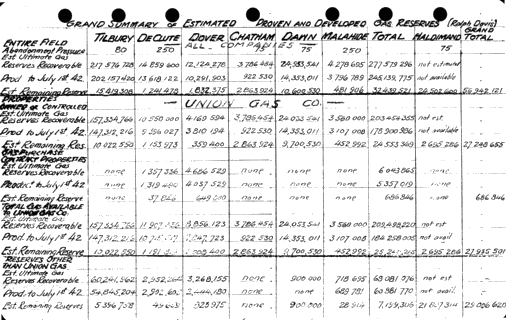 GRAND SUMMARY OF ESTIMATED PROVEN AND DEVELOPED GAS RESERVES (Ralph Davis)
ENTIRE FIELD TILBURY DECLUTE DOVER CHATHAM DAWN MALAHIDE TOTAL HALDIMAND GRAND TOTAL
Abandonment Pressure 80 250 75 75 250 75
— ALL COMPANIES —
Est Ultimate Gas
Reserves Recoverable 217 576 728 14 859 600 12,124,278 3 786 454 24,953,541 4 278 695 277 579 296 not estimated
Prod to July 1st 42 202,157,420 13 618 122 10,291,903 922 530 14,353,011 3 796 789 245,139,775 not available
Est Remaining Reserve 15,419,308 1 241,478 1,832,375 2,863,924 10,600,530 481,906 32,439,521 24,502,600 56,942,121
PROPERTIES OWNED or CONTROLLED — UNION GAS CO. —
Est Ultimate Gas
Reserves Recoverable 157,334,766 4 169 594 3,786,454 24 053 541 3 560 000 203 454 355 not est
Prod to July 1st 42 147,312,216 3 810 194 922 530 14,353,011 3 107 008 178 900 986 not available
Est Remaining Res 10,022,550 1 153,973 359,400 2 863 924 9,700,530 452,992 24 553 369 2 695 286 27 248 655
GAS PURCHASE CONTRACT PROPERTIES
Est Ultimate Gas
Reserves Recoverable none 1 357 336 4 686 529 none none none 6 043 865 none
Product to July 1st 42 none 1 319 490 4 037 529 none none none 5 357 019 none
Est Remaining Reserve none 37,846 649,000 none none none 686 846 none 686 846
TOTAL GAS AVAILABLE TO UNION GAS CO.
Est Ultimate Gas
Reserves Recoverable 157 334,766 8,856,123 3 786 454 24,053,541 3 560 000 209,498,220 not est
Prod to July 1st 42 147,312,216 7,847,723 922 530 14,353,011 3 107 008 184 258 005 not avail
Est Remaining Reserve 10,022,550 1,008,400 2 863,924 9,700,530 452,992 25,240,215 2 695 286 27,935,501
RESERVES OTHER THAN UNION GAS
Est Ultimate Gas
Reserves Recoverable 60,241,962 2,952,264 3,268,155 none 900 000 718 695 68 081 076 not est
Prod to July 1st 42 54,845,204 2,444,180 none none 689 781 60 881 770 not avail
Est Remaining Reserves 5 396 758 823 975 none 900,000 28 914 7,199,306 21 807 314 29 006 620